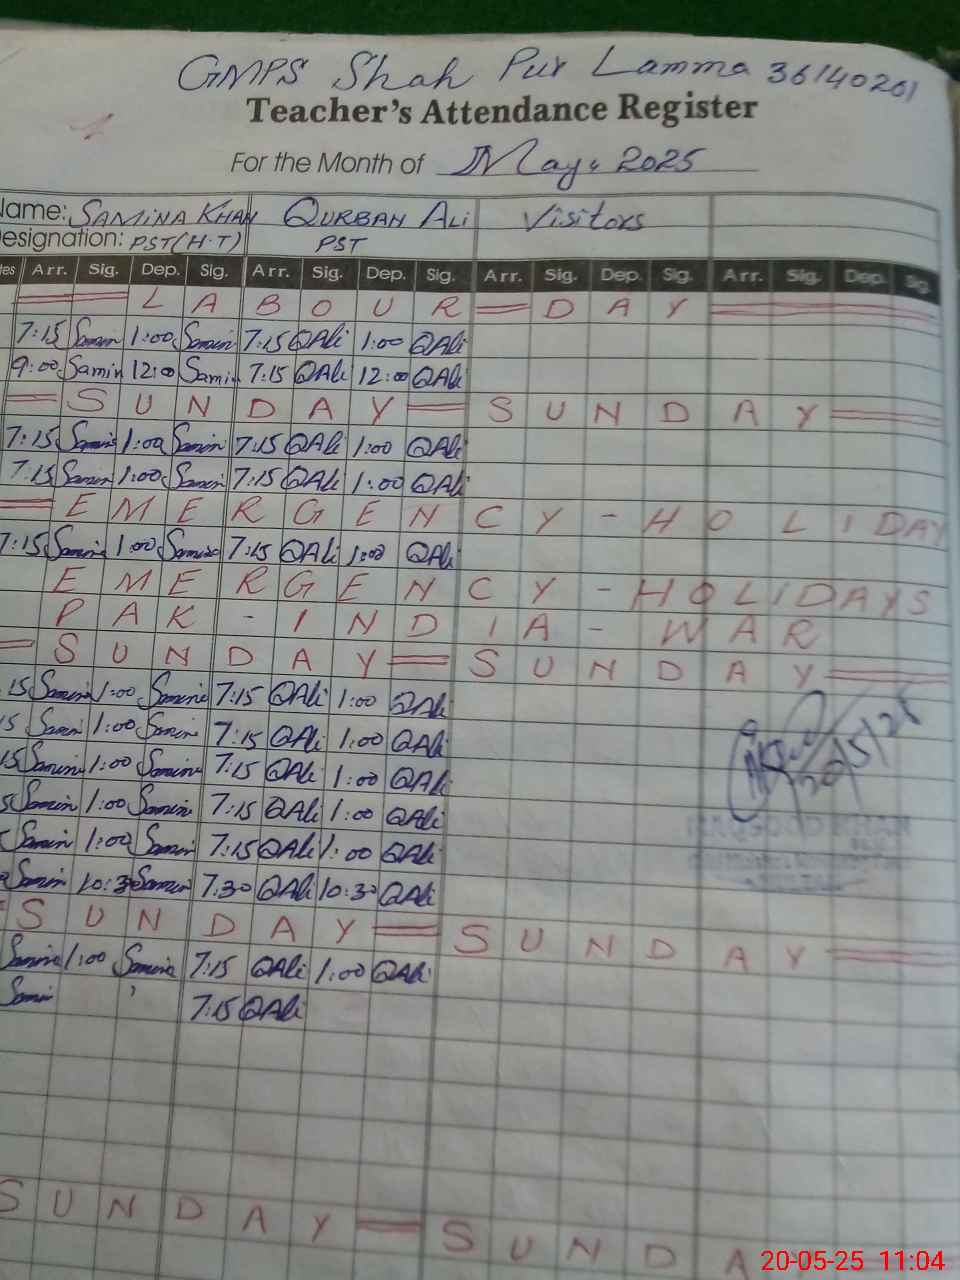 GMPS Shah Pur Lamma 36140201
Teacher's Attendance Register
For the Month of May, 2025
Name: SAMINA KHAN QURBAN ALI Visitors
Designation: PST(H.T) PST
tes Arr. Sig. Dep. Sig. Arr. Sig. Dep. Sig. Arr. Sig. Dep. Sig. Arr. Sig. Dep. Sig.
LABOUR DAY
7:15 Samin 1:00 Samin 7:15 QAli 1:00 QAli
9:00 Samin 12:00 Samin 7:15 QAli 12:00 QAli
SUNDAY SUNDAY
7:15 Samin 1:00 Samin 7:15 QAli 1:00 QAli
7:15 Samin 1:00 Samin 7:15 QAli 1:00 QAli
EMERGENCY - HOLIDAY
7:15 Samin 1:00 Samin 7:15 QAli 1:00 QAli
EMERGENCY - HOLIDAYS
PAK - INDIA - WAR
SUNDAY SUNDAY
15 Samin 1:00 Samin 7:15 QAli 1:00 QAli
15 Samin 1:00 Samin 7:15 QAli 1:00 QAli
15 Samin 1:00 Samin 7:15 QAli 1:00 QAli
5 Samin 1:00 Samin 7:15 QAli 1:00 QAli
Samin 1:00 Samin 7:15 QAli 1:00 QAli
Samin 10:30 Samin 7:30 QAli 10:30 QAli
SUNDAY SUNDAY
Samin 1:00 Samin 7:15 QAli 1:00 QAli
Samin 7:15 QAli
20/5/25
SUNDAY SUNDA
20-05-25 11:04